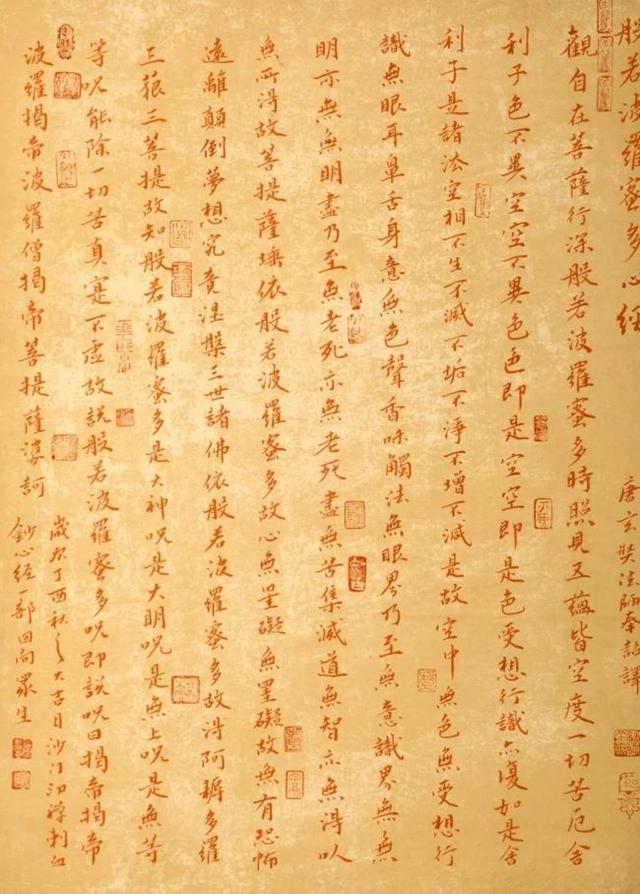 般若波羅蜜多心經
唐玄奘法師奉詔譯
觀自在菩薩行深般若波羅蜜多時照見五蘊皆空度一切苦厄舍
利子色不異空空不異色色即是空空即是色受想行識亦復如是舍
利子是諸法空相不生不滅不垢不淨不增不減是故空中無色無受想行
識無眼耳鼻舌身意無色聲香味觸法無眼界乃至無意識界無無
明亦無無明盡乃至無老死亦無老死盡無苦集滅道無智亦無得以
無所得故菩提薩埵依般若波羅蜜多故心無罣礙無罣礙故無有恐怖
遠離顛倒夢想究竟涅槃三世諸佛依般若波羅蜜多故得阿耨多羅
三藐三菩提故知般若波羅蜜多是大神呪是大明呪是無上呪是無等
等呪能除一切苦真實不虛故說般若波羅蜜多呪即說呪曰揭帝揭帝
波羅揭帝波羅僧揭帝菩提薩婆訶
歲次丁酉秋之大吉日沙門初禪刺血
鈔心經一部回向眾生